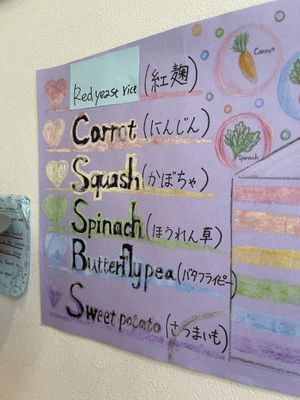 Red yease rice (紅麹)
Carrot (にんじん)
Squash (かぼちゃ)
Spinach (ほうれん草)
Butterfly pea (バタフライピー)
Sweet potato (さつまいも)
Carrot
Spinach